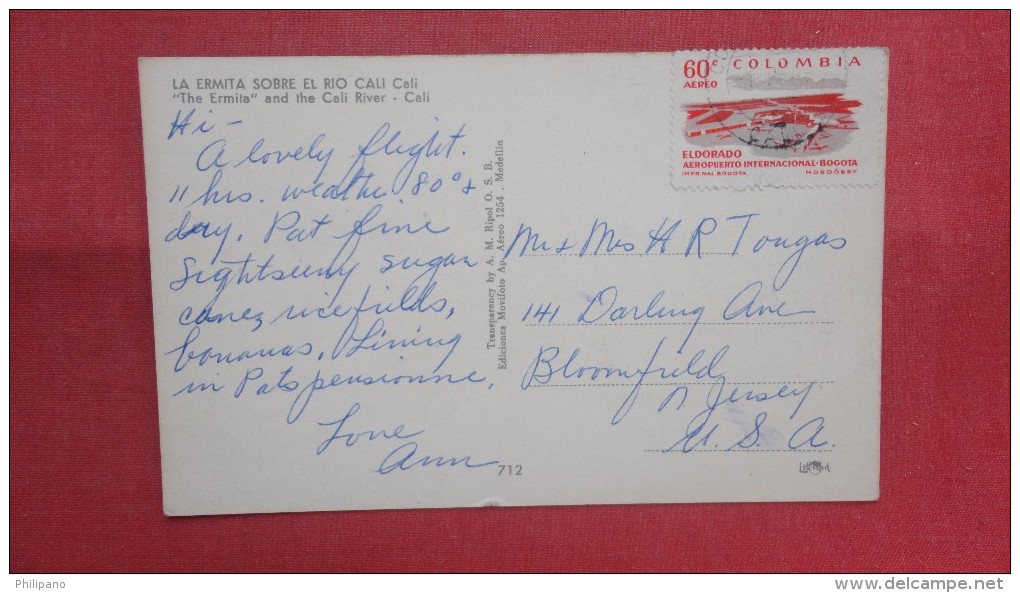 LA ERMITA SOBRE EL RIO CALI Cali
"The Ermita" and the Cali River - Cali
Hi -
A lovely flight.
11 hrs. weathe 80° &
day. Pat fine
Sightseeing sugar
canez ricefields,
bananas. Living
in Pats pensionne.
Love
Ann
Transparency by A. M. Ripol O. S. B.
Ediciones Movifoto Ap. Aéreo 1254 . Medellin
712
60c COLOMBIA
AEREO
ELDORADO
AEROPUERTO INTERNACIONAL-BOGOTA
IMPR.NAL BOGOTA
Mr & Mrs H R Tougas
141 Darling Ave
Bloomfield
N Jersey
U. S. A.
Philipano
http://www.delcampe.net